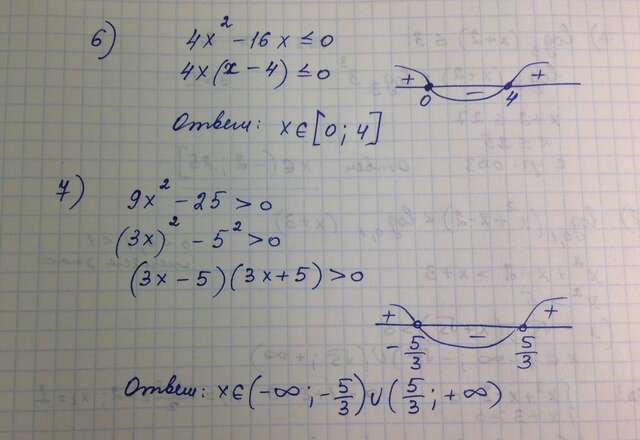 6) 4x² - 16x ≤ 0
4x(x - 4) ≤ 0
+ - +
0 4
Ответ: x∈[0; 4]
7) 9x² - 25 > 0
(3x)² - 5² > 0
(3x - 5)(3x + 5) > 0
+ - +
-5/3 5/3
Ответ: x∈(-∞; -5/3)∪(5/3; +∞)